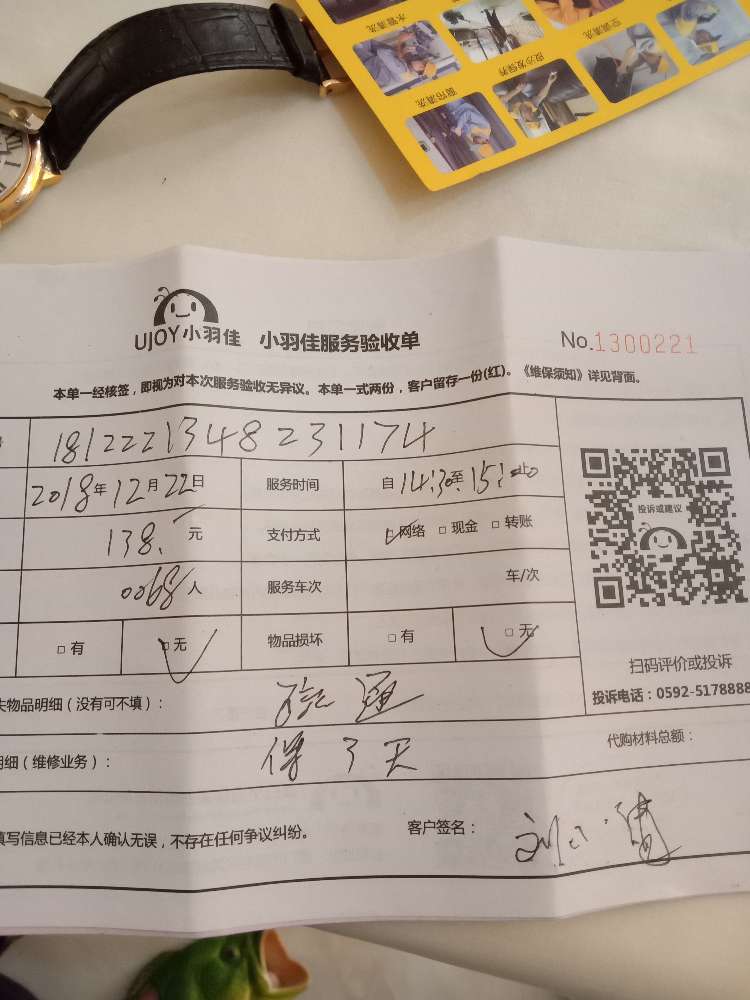 水管清洗
空调清洗
皮沙发保养
窗帘清洗
UJOY小羽佳 小羽佳服务验收单 No.1300221
本单一经核签，即视为对本次服务验收无异议。本单一式两份，客户留存一份(红)。《维保须知》详见背面。
18122221348231174
2018年12月22日 服务时间 自14:30至15:
138.元 支付方式 网络 现金 转账
0068人 服务车次 车/次
有 无 物品损坏 有 无
投诉或建议
扫码评价或投诉
投诉电话：0592-5178888
失物品明细（没有可不填）： 疏通
明细（维修业务）： 保了天
代购材料总额：
填写信息已经本人确认无误，不存在任何争议纠纷。 客户签名：